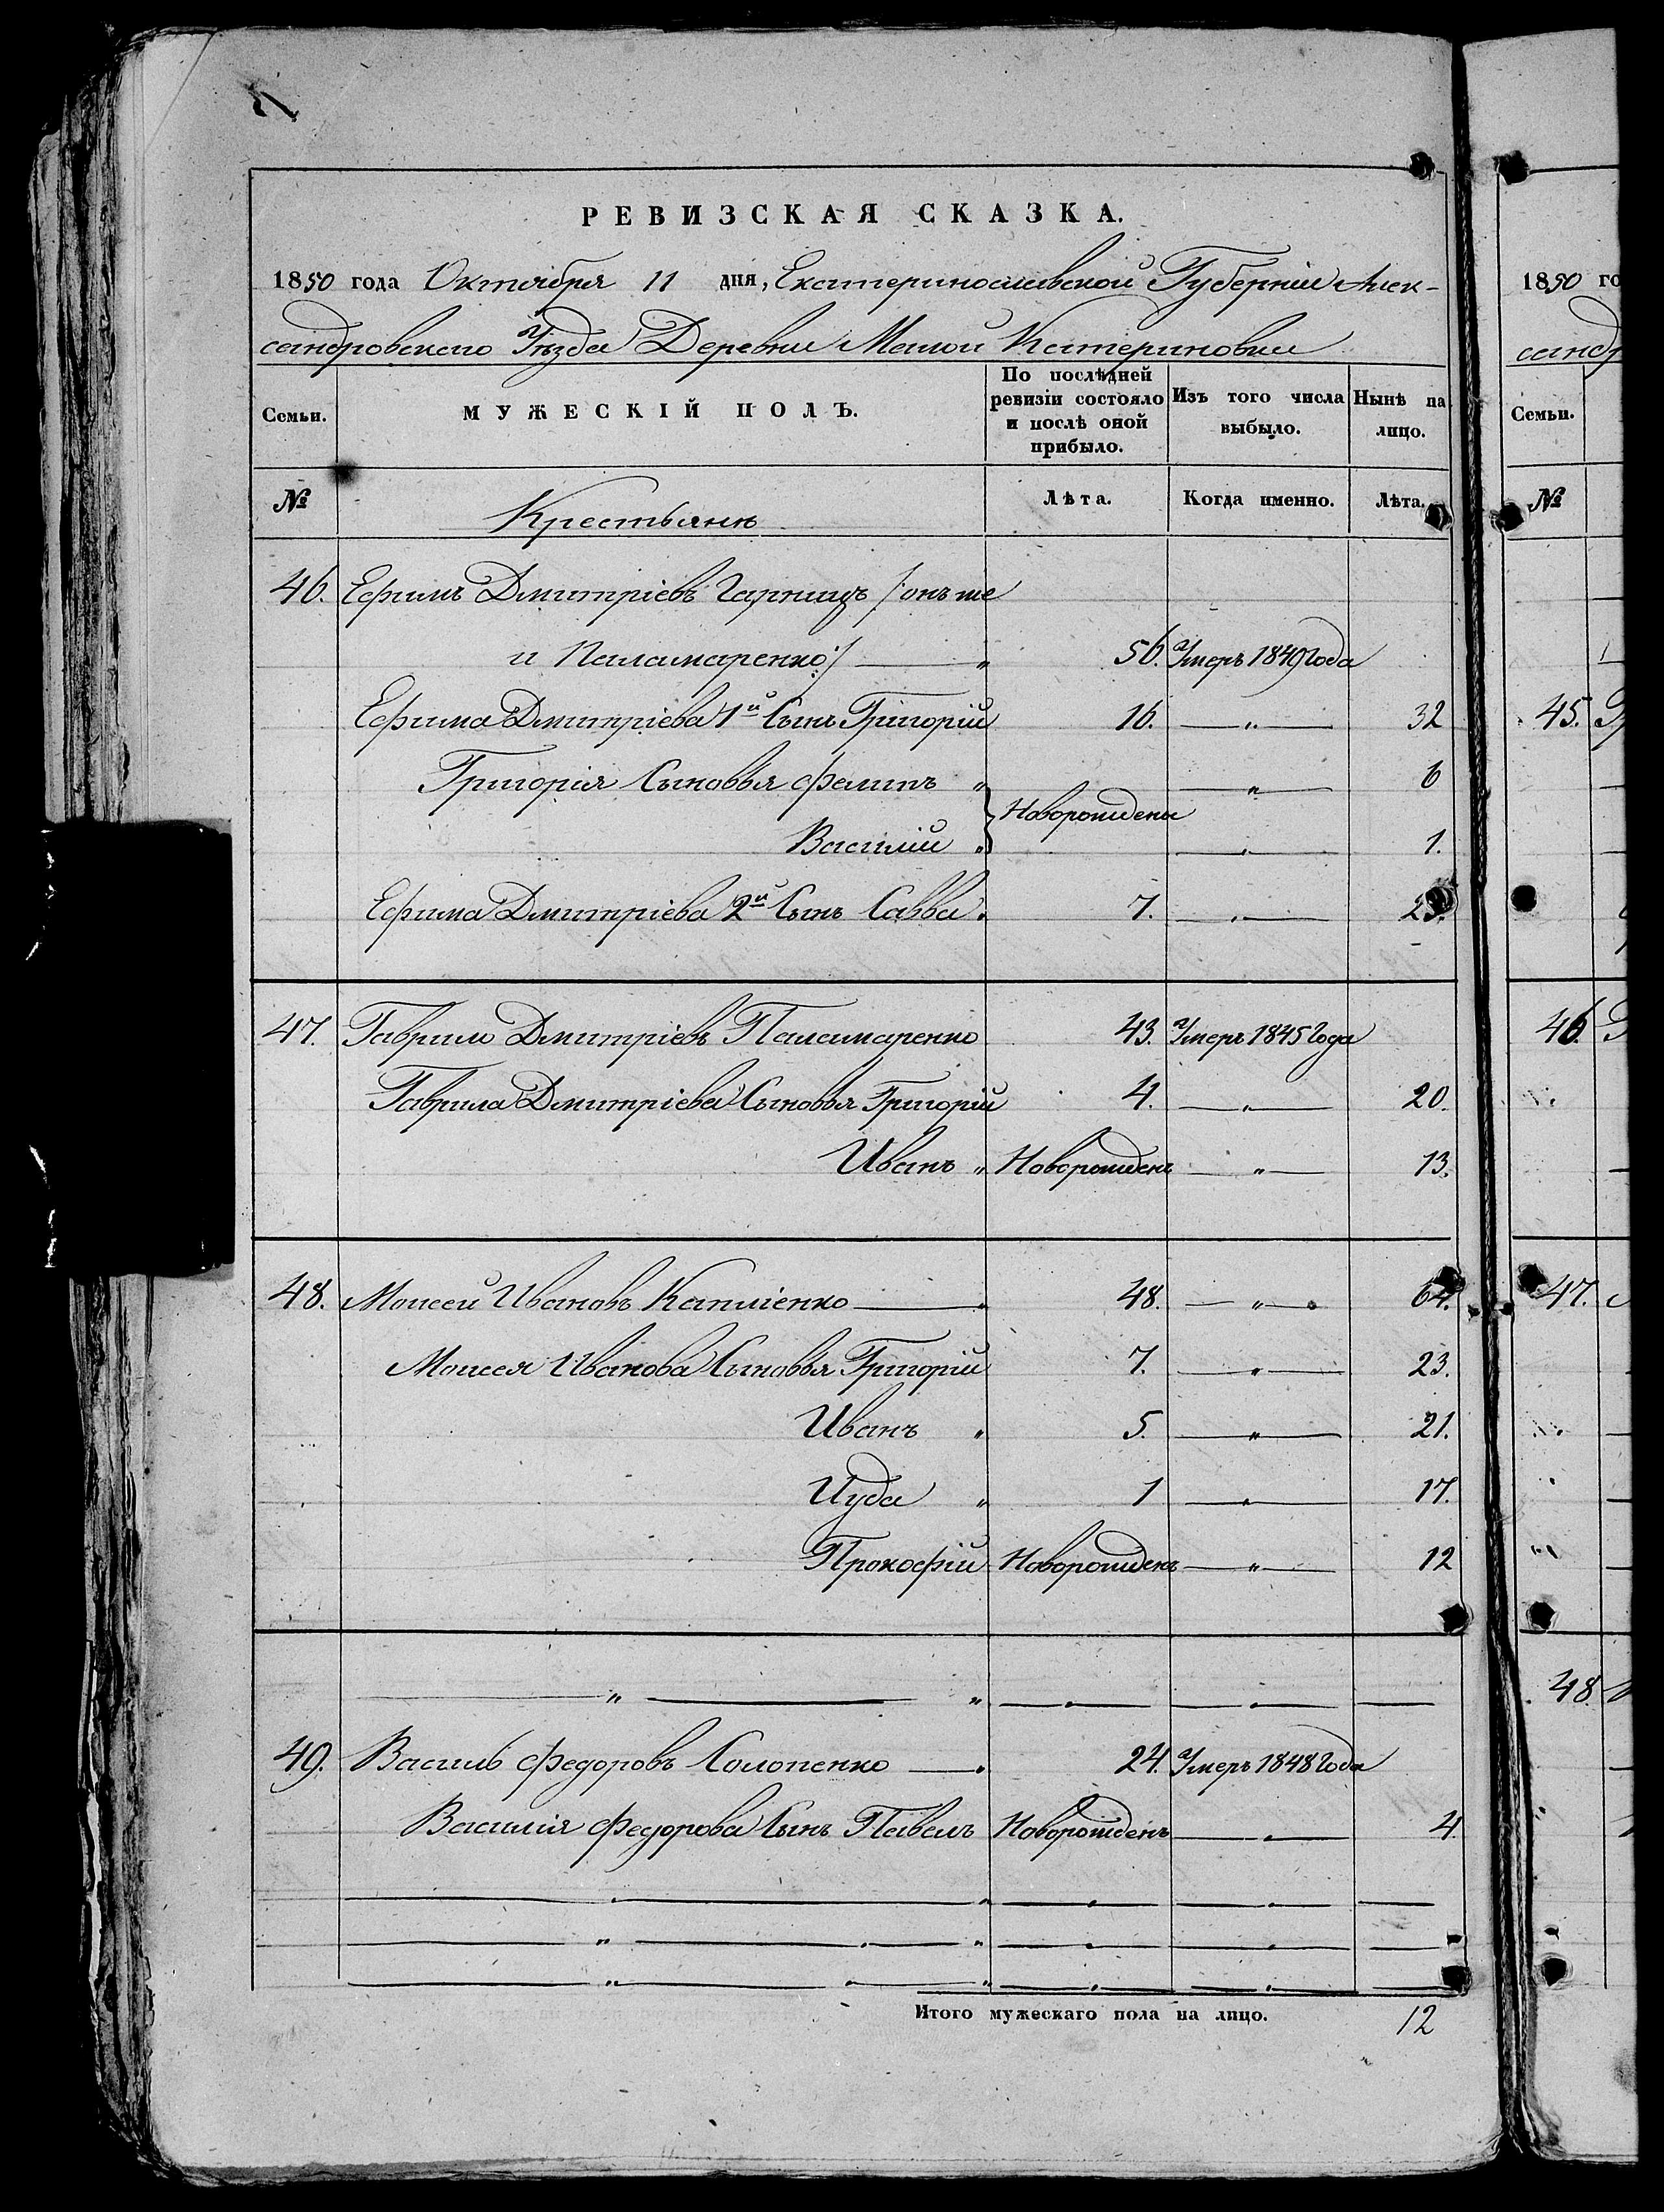 РЕВИЗСКАЯ СКАЗКА.
1850 года Октября 11 дня, Екатеринославской Губерніи Алек-
сандровскаго Уѣзда Деревни Малой Катериновки
Семьи. МУЖЕСКІЙ ПОЛЪ. По послѣдней ревизіи состояло и послѣ оной прибыло. Изъ того числа выбыло. Нынѣ на лицо.
№ Крестьянъ Лѣта. Когда именно. Лѣта.
46. Ефимъ Дмитріевъ /:онъ же
и Паламаренко:/ — „ 56. Умеръ 1849 года
Ефима Дмитріева 1й Сынъ Григорій 16. — „ — 32
Григорія Сыновья Филипъ „ — „ — 6
Новорождены
Василій „ — „ — 1.
Ефима Дмитріева 2й Сынъ Савва „ 7. — „ — 23.
47. Гаврило Дмитріевъ Паламаренко 43. Умеръ 1845 Года
Гаврила Дмитріева Сыновья Григорій 4. — „ — 20.
Иванъ „ Новорожденъ — „ — 13.
48. Моисей Ивановъ — „ 48. — „ — 64.
Моисея Иванова Сыновья Григорій 7. — „ — 23.
Иванъ „ 5. — „ — 21.
Иуда „ 1 — „ — 17.
Прокофій Новорожденъ — „ — 12
— „ — „ — „ — — „ — —
49. Василь Федоровъ Солопенко — „ 24. Умеръ 1848 Года
Василія Федорова Сынъ Павелъ Новорожденъ — „ — 4.
Итого мужескаго пола на лицо. 12
1850 го
санд
Семьи.
№
45.
46.
47.
48